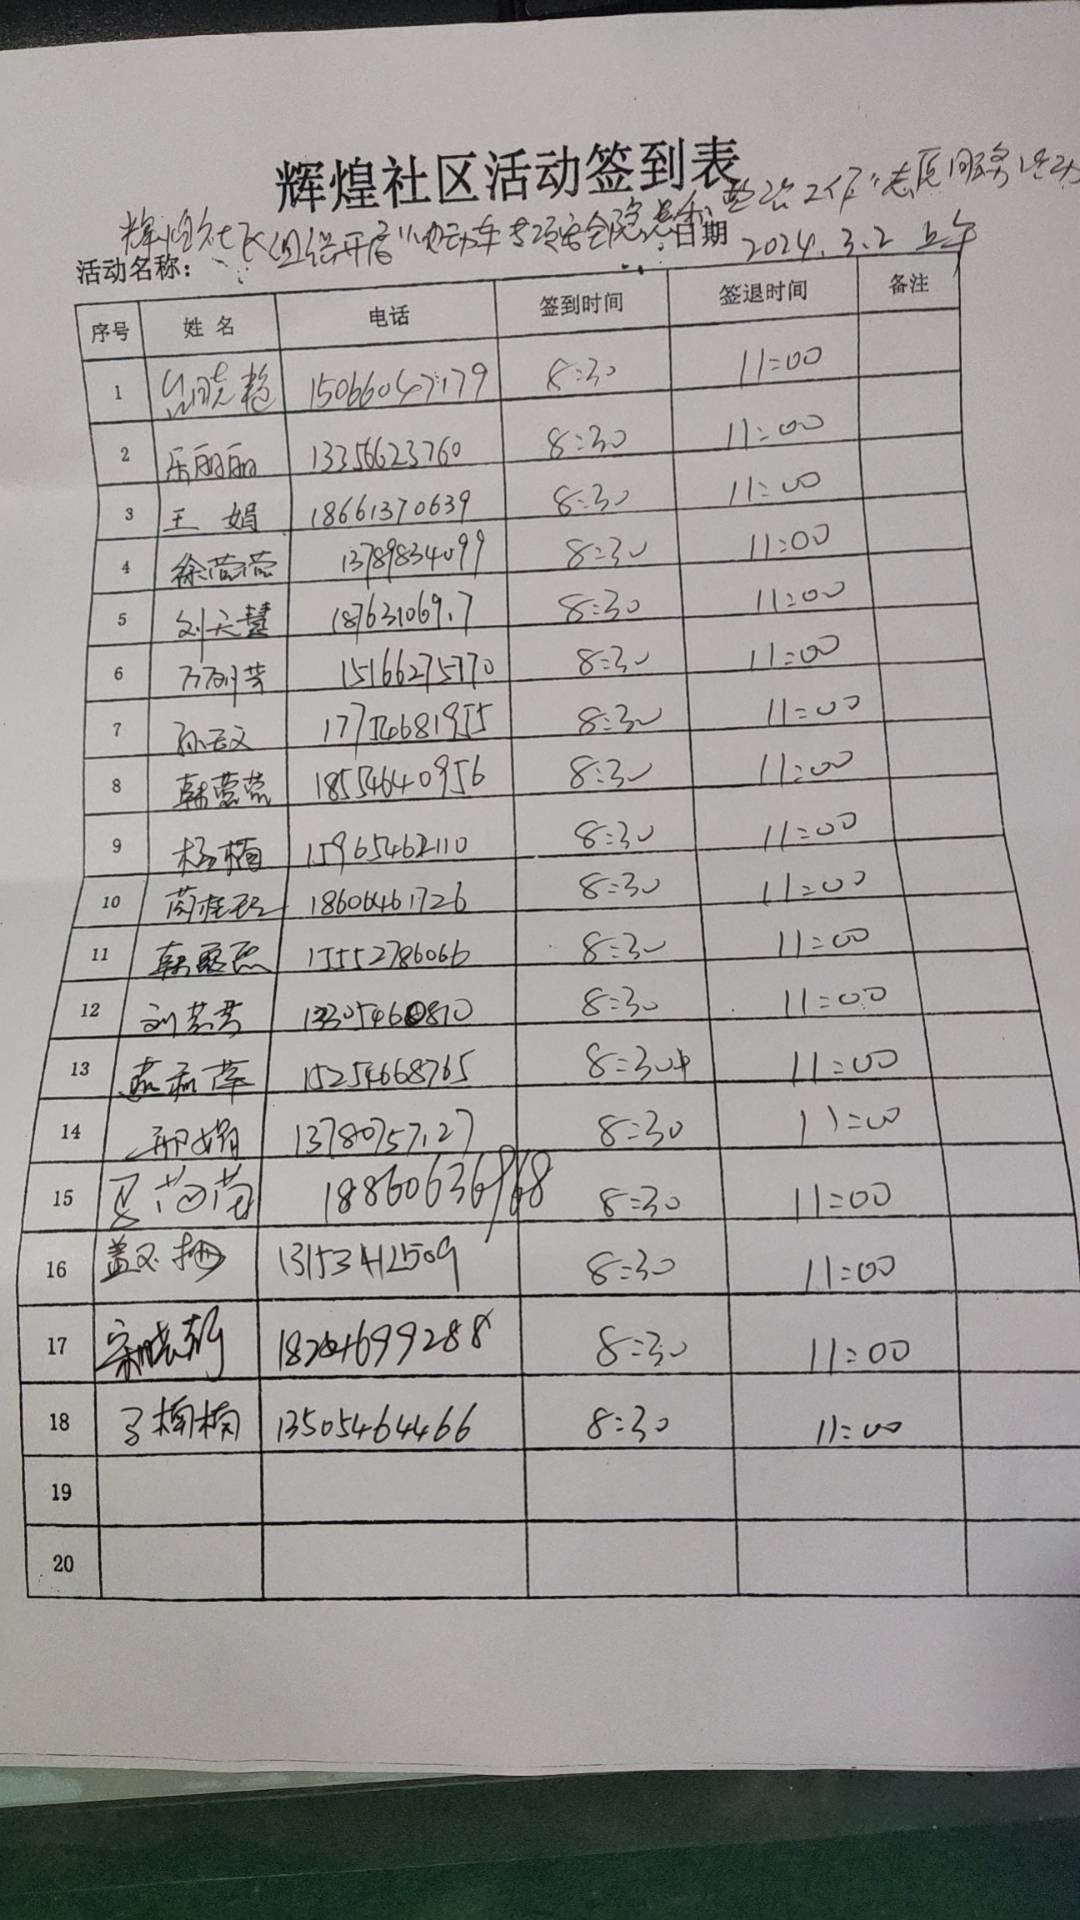 辉煌社区活动签到表
辉煌社区组织开启"电动车专项安全隐患和整治工作"志愿服务活动
活动名称： 日期 2024.3.2 上午
序号 姓名 电话 签到时间 签退时间 备注
1 15066047179 8:30 11:00
2 乐丽丽 13356623760 8:30 11:00
3 王娟 18661370639 8:30 11:00
4 徐蓓蓓 13789834099 8:30 11:00
5 刘天慧 8:30 11:00
6 15166275770 8:30 11:00
7 孙云文 17754681955 8:30 11:00
8 韩蓉蓉 18554640956 8:30 11:00
9 杨楠 15965462110 8:30 11:00
10 18606461726 8:30 11:00
11 15552786066 8:30 11:00
12 刘芸芸 13305460810 8:30 11:00
13 15254668765 8:30 11:00
14 邢娟 13780757127 8:30 11:00
15 18860636968 8:30 11:00
16 13153412509 8:30 11:00
17 宋晓朝 8:30 11:00
18 13505464466 8:30 11:00
19
20